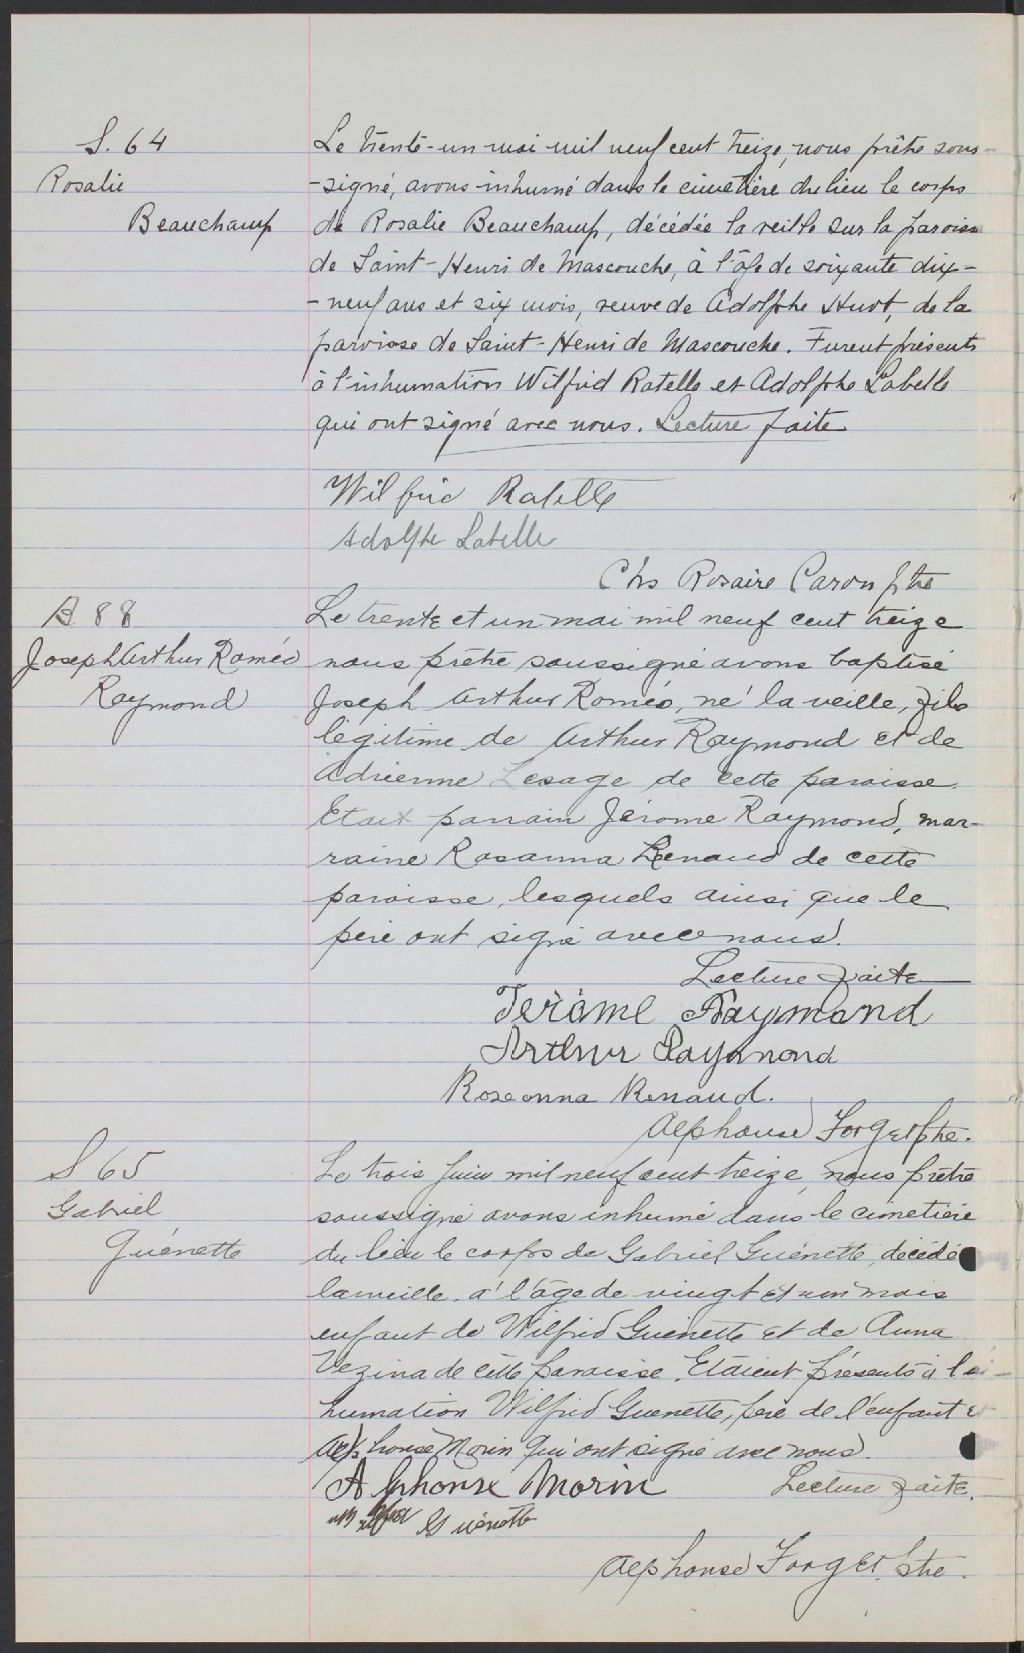 S. 64
Rosalie
Beauchamp
Le trente-un mai mil neuf cent treize, nous prêtre sous-
-signé, avons inhumé dans le cimetière du lieu le corps
de Rosalie Beauchamp, décédée la veille sur la paroisse
de Saint-Henri de Mascouche, à l'âge de soixante dix-
-neuf ans et six mois, veuve de Adolphe Huot, de la
paroisse de Saint-Henri de Mascouche. Furent présents
à l'inhumation Wilfrid Ratelle et Adolphe Labelle
qui ont signé avec nous. Lecture faite
Wilfrid Ratelle
Adolphe Labelle
Chs Rosaire Caron ptre
B 88
Joseph Arthur Roméo
Raymond
Le trente et un mai mil neuf cent treize
nous prêtre soussigné avons baptisé
Joseph Arthur Roméo, né la veille, fils
légitime de Arthur Raymond et de
Adrienne Lesage de cette paroisse.
Etait parrain Jérome Raymond, mar-
raine Rosanna Renaud de cette
paroisse, lesquels ainsi que le
père ont signé avec nous.
Lecture faite
Jérôme Raymond
Arthur Raymond
Roseanna Renaud.
Alphonse Forget ptre.
S 65
Gabriel
Guénette
Le trois juin mil neuf cent treize, nous prêtre
soussigné avons inhumé dans le cimetière
du lieu le corps de Gabriel Guénette, décédé
la veille, à l'âge de vingt et un mois
enfant de Wilfrid Guénette et de Anna
Vezina de cette paroisse. Etaient présents à l'in-
humation Wilfrid Guenette, père de l'enfant et
Alphonse Morin qui ont signé avec nous.
Alphonse Morin
Lecture faite.
Guénette
Alphonse Forget. ptre.